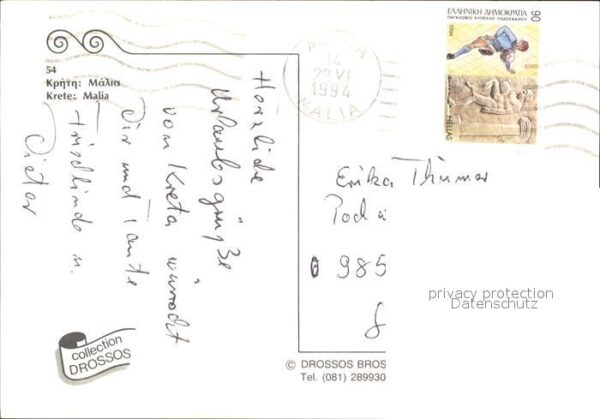 54
Κρήτη: Μάλια
Krete: Malia
Herzliche
Urlaubsgrüße
von Kreta wünscht
Dir und Tante
Friedlinde u.
Dieter
collection
DROSSOS
ΜΑΛΙΑ
14
22 VI
1994
MALIA
ΕΛΛΗΝΙΚΗ ΔΗΜΟΚΡΑΤΙΑ
ΠΑΓΚΟΣΜΙΟ ΚΥΠΕΛΛΟ ΠΟΔΟΣΦΑΙΡΟΥ
1994
90
HELLAS
Erika
985
privacy protection
Datenschutz
© DROSSOS BROS
Tel. (081) 289930